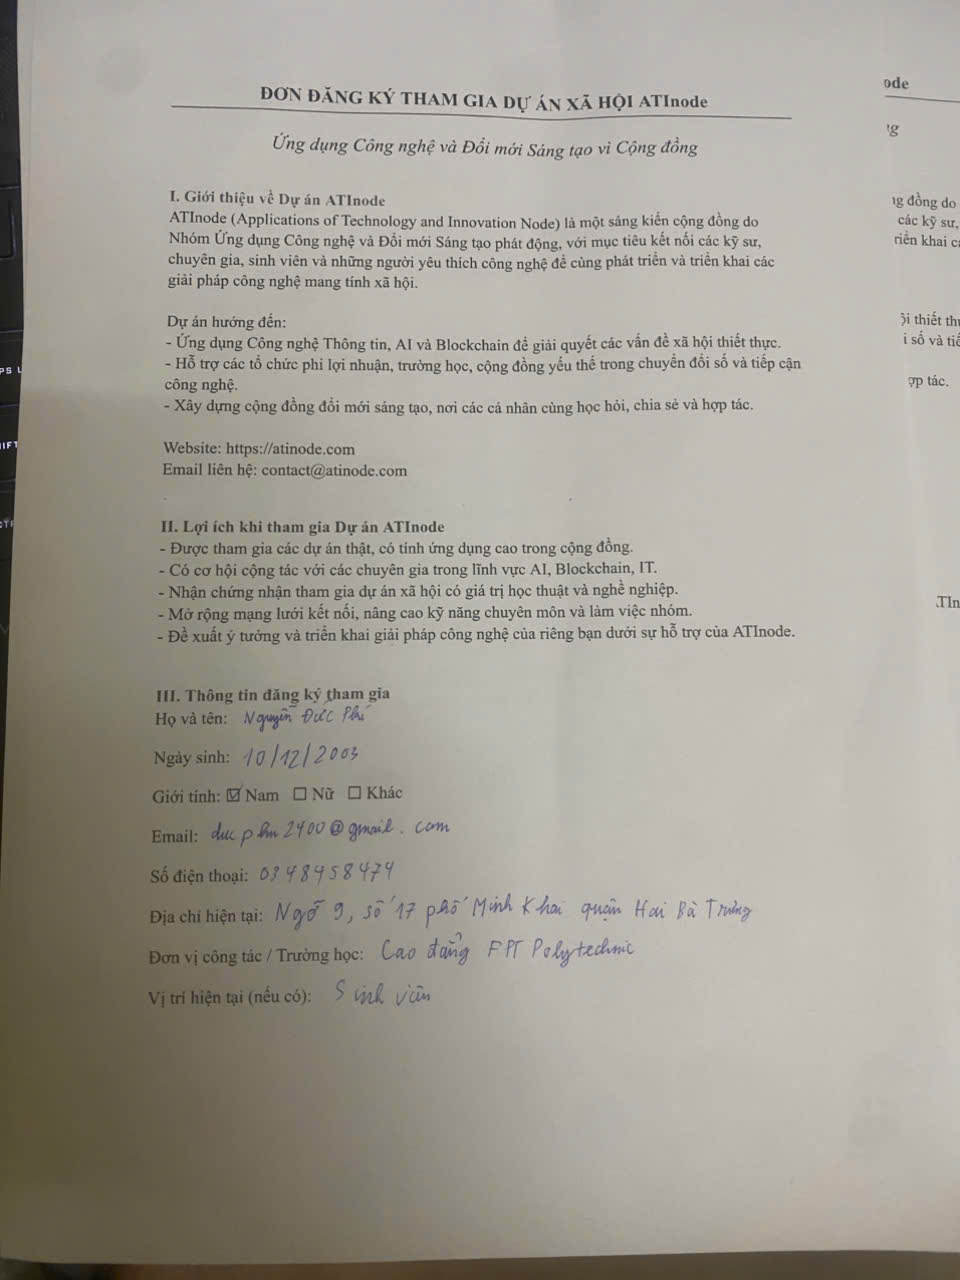 ĐƠN ĐĂNG KÝ THAM GIA DỰ ÁN XÃ HỘI ATInode
Ứng dụng Công nghệ và Đổi mới Sáng tạo vì Cộng đồng
I. Giới thiệu về Dự án ATInode
ATInode (Applications of Technology and Innovation Node) là một sáng kiến cộng đồng do
Nhóm Ứng dụng Công nghệ và Đổi mới Sáng tạo phát động, với mục tiêu kết nối các kỹ sư,
chuyên gia, sinh viên và những người yêu thích công nghệ để cùng phát triển và triển khai các
giải pháp công nghệ mang tính xã hội.
Dự án hướng đến:
- Ứng dụng Công nghệ Thông tin, AI và Blockchain để giải quyết các vấn đề xã hội thiết thực.
- Hỗ trợ các tổ chức phi lợi nhuận, trường học, cộng đồng yếu thế trong chuyển đổi số và tiếp cận
công nghệ.
- Xây dựng cộng đồng đổi mới sáng tạo, nơi các cá nhân cùng học hỏi, chia sẻ và hợp tác.
Website: https://atinode.com
Email liên hệ: contact@atinode.com
II. Lợi ích khi tham gia Dự án ATInode
- Được tham gia các dự án thật, có tính ứng dụng cao trong cộng đồng.
- Có cơ hội cộng tác với các chuyên gia trong lĩnh vực AI, Blockchain, IT.
- Nhận chứng nhận tham gia dự án xã hội có giá trị học thuật và nghề nghiệp.
- Mở rộng mạng lưới kết nối, nâng cao kỹ năng chuyên môn và làm việc nhóm.
- Đề xuất ý tưởng và triển khai giải pháp công nghệ của riêng bạn dưới sự hỗ trợ của ATInode.
III. Thông tin đăng ký tham gia
Họ và tên: Nguyễn Đức Phú
Ngày sinh: 10/12/2003
Giới tính: ☑ Nam ☐ Nữ ☐ Khác
Email: ducphu2400@gmail.com
Số điện thoại: 0348458474
Địa chỉ hiện tại: Ngõ 9, số 17 phố Minh Khai quận Hai Bà Trưng
Đơn vị công tác / Trường học: Cao đẳng FPT Polytechnic
Vị trí hiện tại (nếu có): Sinh viên